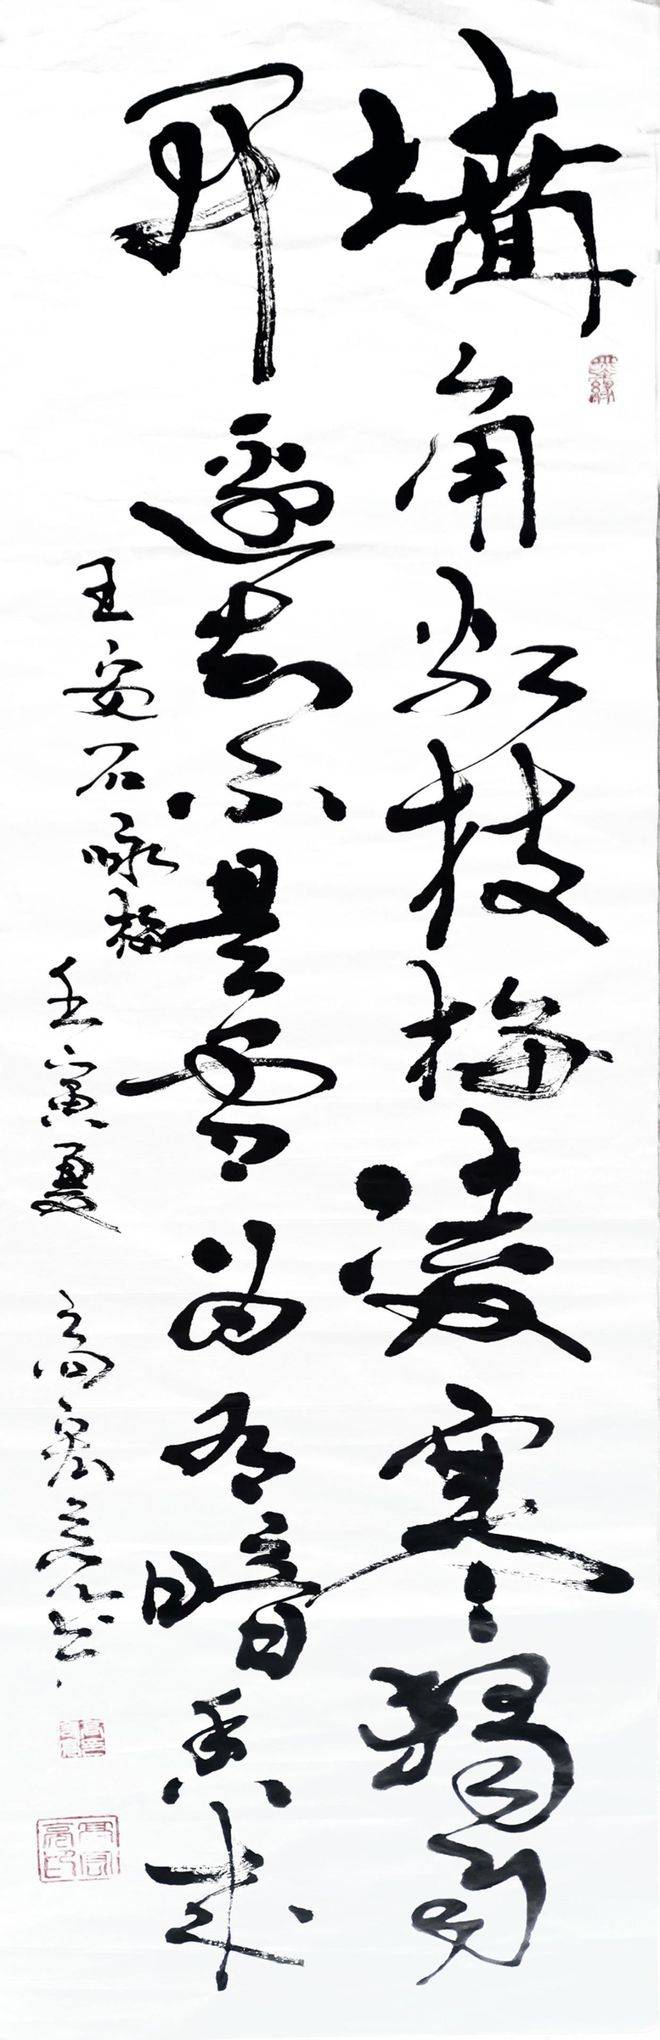 墙角数枝梅凌寒独自
开遥知不是雪为有暗香来
王安石咏梅 壬寅夏 高宏亮书